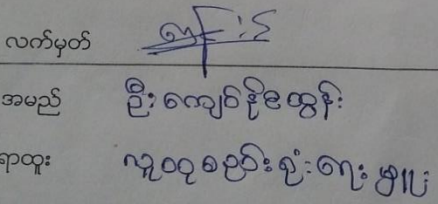 လက်မှတ်
အမည် ဦးကျော်နိုင်ထွန်း
ရာထူး လူထုစည်းရုံးရေးမှူး